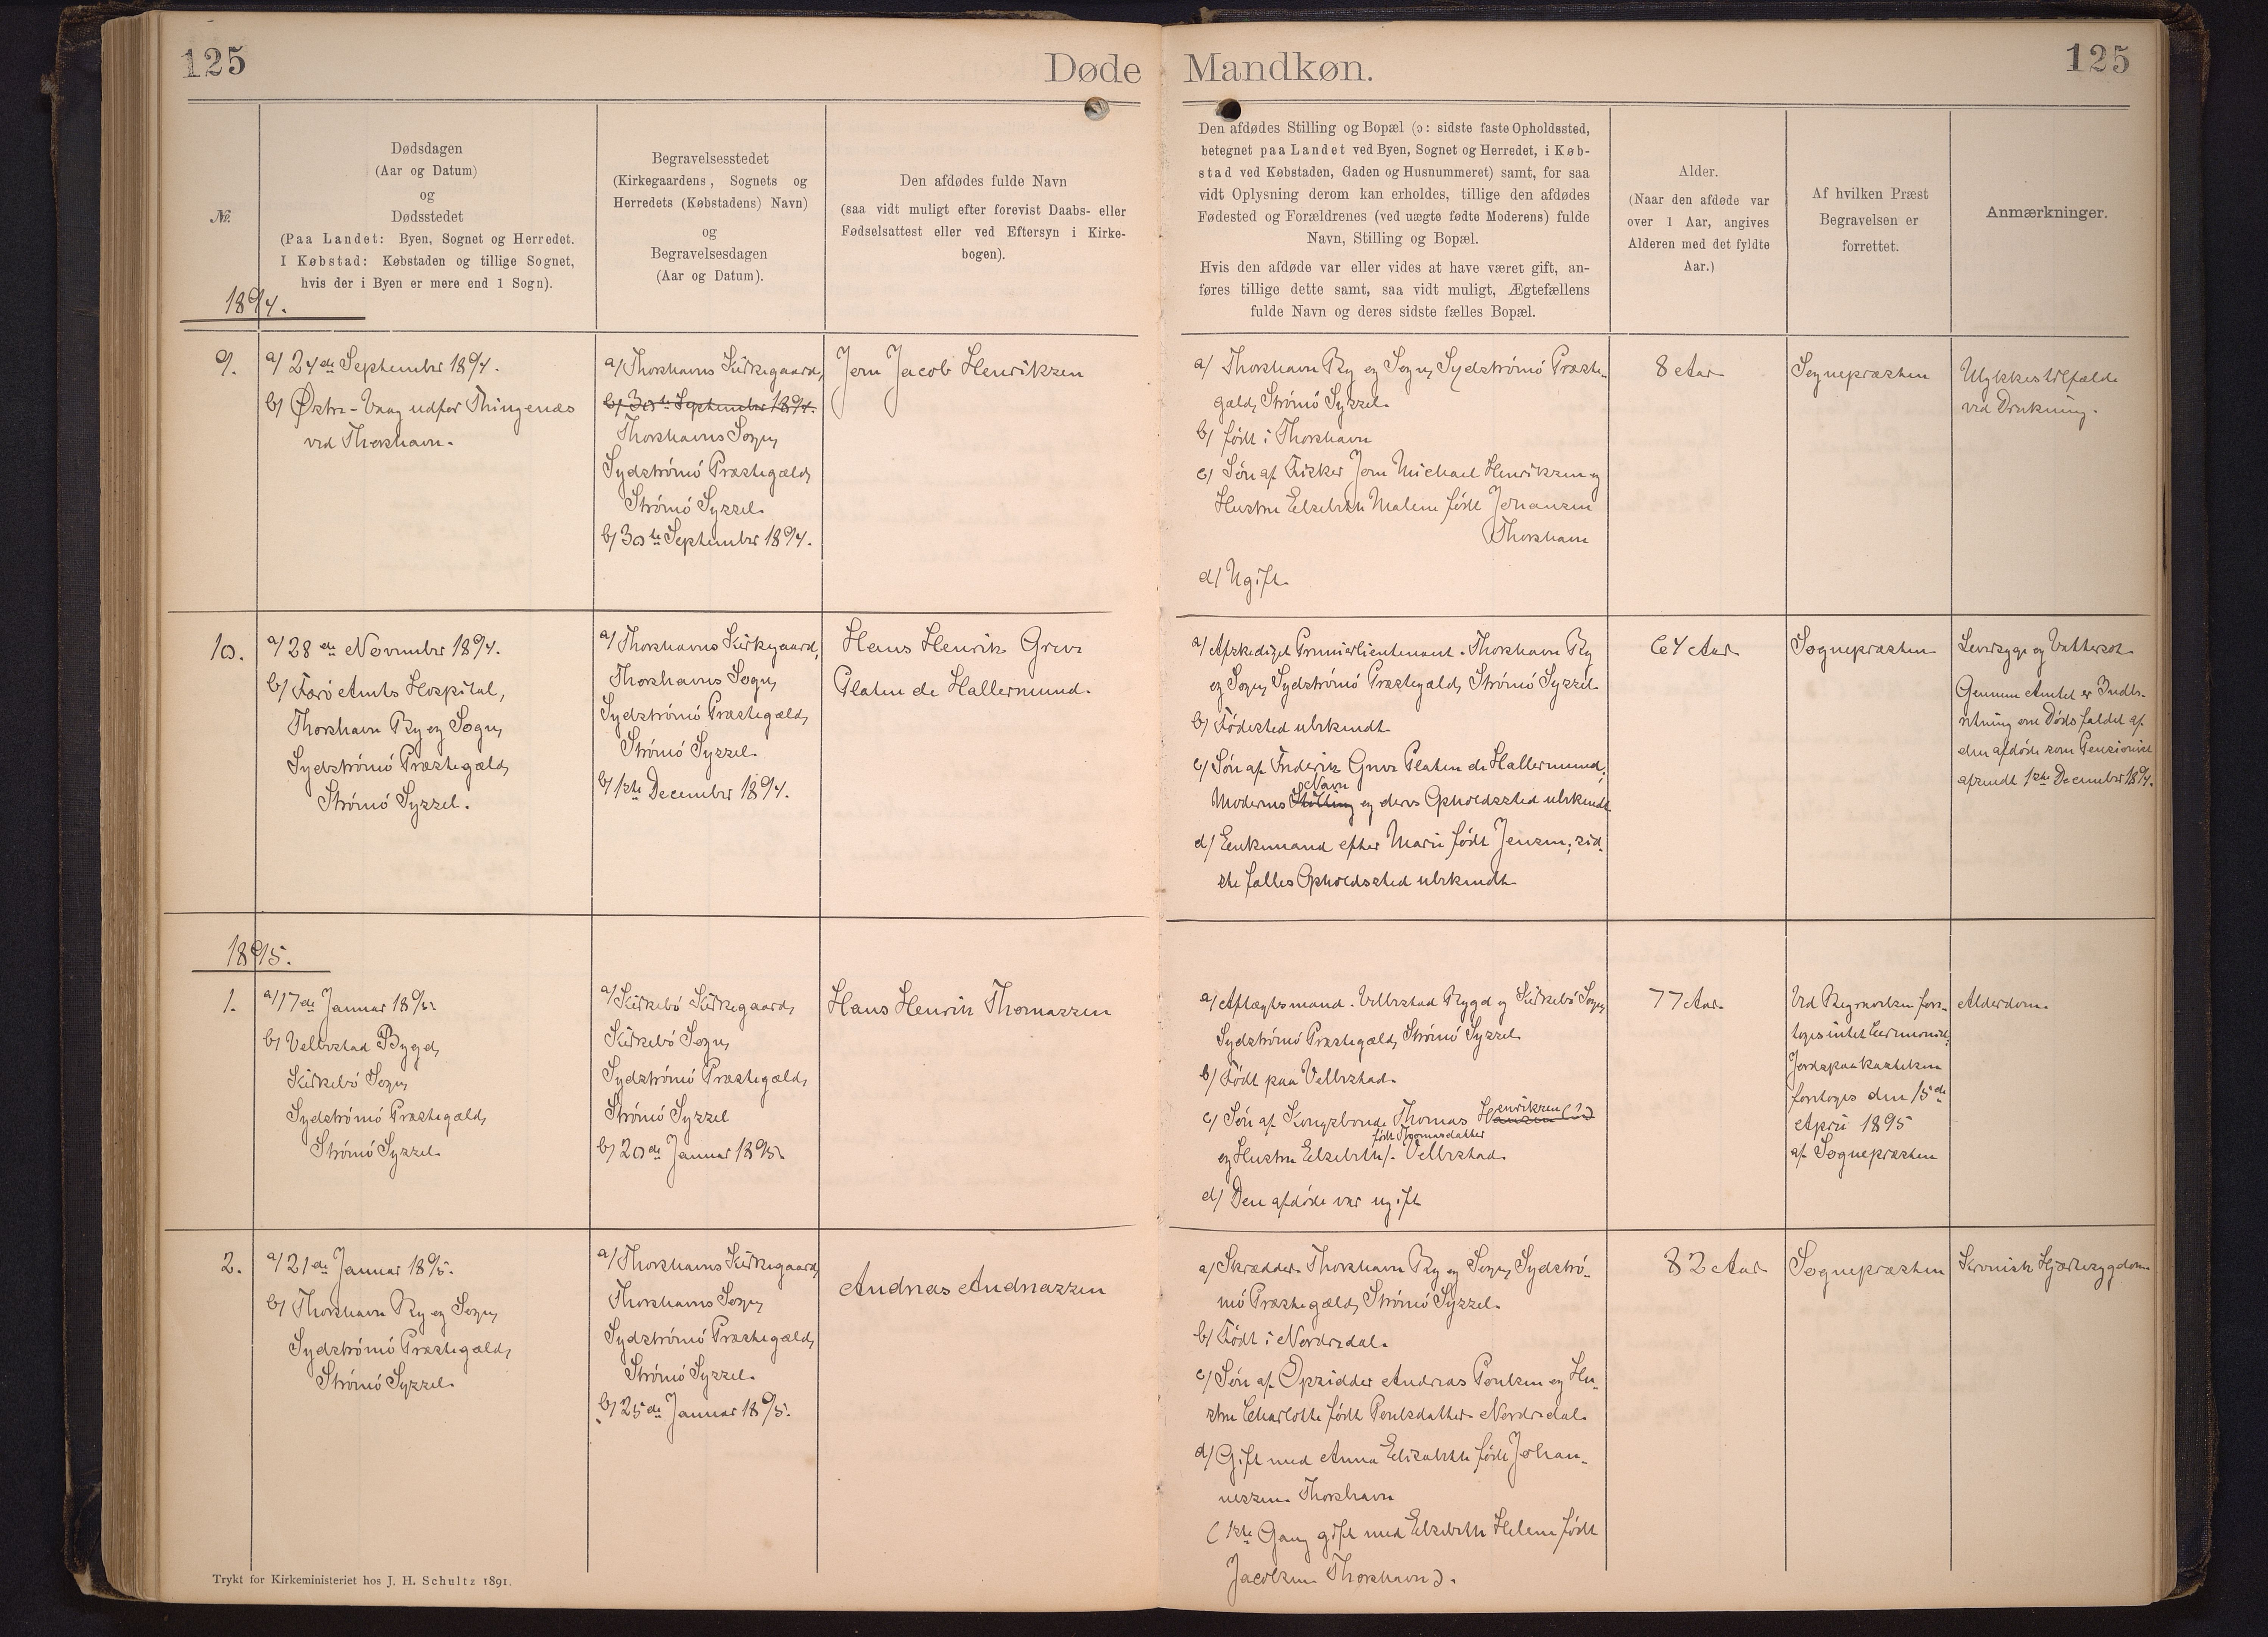 125
Døde
Mandkøn.
125
№.
Dødsdagen
(Aar og Datum)
og
Dødsstedet
(Paa Landet: Byen, Sognet og Herredet.
I Købstad: Købstaden og tillige Sognet,
hvis der i Byen er mere end 1 Sogn).
Begravelsesstedet
(Kirkegaardens, Sognets og
Herredets (Købstadens) Navn)
og
Begravelsesdagen
(Aar og Datum).
Den afdødes fulde Navn
(saa vidt muligt efter forevist Daabs- eller
Fødselsattest eller ved Eftersyn i Kirke-
bogen).
Den afdødes Stilling og Bopæl (ɔ: sidste faste Opholdssted,
betegnet paa Landet ved Byen, Sognet og Herredet, i Køb-
stad ved Købstaden, Gaden og Husnummeret) samt, for saa
vidt Oplysning derom kan erholdes, tillige den afdødes
Fødested og Forældrenes (ved uægte fødte Moderens) fulde
Navn, Stilling og Bopæl.
Hvis den afdøde var eller vides at have været gift, an-
føres tillige dette samt, saa vidt muligt, Ægtefællens
fulde Navn og deres sidste fælles Bopæl.
Alder.
(Naar den afdøde var
over 1 Aar, angives
Alderen med det fyldte
Aar.)
Af hvilken Præst
Begravelsen er
forrettet.
Anmærkninger.
1894.
9.
a/ 24de September 1894.
b/ Østre-Vaag udfor Thingenæs
ved Thorshavn.
a/ Thorshavns Kirkegaard,
b/ 30te September 1894.
Thorshavns Sogn,
Sydstrømø Præstegæld,
Strømø Syssel.
b/ 30te September 1894.
Jorn Jacob Henriksen
a/ Thorshavn By og Sogn, Sydstrømø Præste-
gæld, Strømø Syssel.
b/ født i Thorshavn
c/ Søn af Fisker Jorn Michael Henriksen og
Hustru Elsebeth Malene født Johansen
Thorshavn
d/ Ugift.
8 Aar
Sognepræsten
Ulykkestilfælde
ved Drukning.
10.
a/ 28de November 1894.
b/ Færø Amts Hospital,
Thorshavn By og Sogn,
Sydstrømø Præstegæld,
Strømø Syssel.
a/ Thorshavns Kirkegaard,
Thorshavns Sogn,
Sydstrømø Præstegæld,
Strømø Syssel.
b/ 1ste December 1894.
Hans Henrik Greve
Platen de Hallermund.
a/ Afskediget Premierlieutenant. Thorshavn By
og Sogn, Sydstrømø Præstegæld, Strømø Syssel.
b/ Fødested ubekendt.
c/ Søn af Frederik Greve Platen de Hallermund;
Navn
Moderens Stilling og deres Opholdssted ubekendt
d/ Enkemand efter Marie født Jensen; sid-
ste fælles Opholdssted ubekendt.
64 Aar
Sognepræsten
Leversyge og Vattersot.
Gennem Amtet er Indbe-
retning om Dødsfaldet af
den afdøde som Pensionist
afsendt 1ste December 1894.
1895.
1.
a/ 17de Januar 1895.
b/ Velbestad Bygd,
Kirkebø Sogn,
Sydstrømø Præstegæld,
Strømø Syssel.
a/ Kirkebø Kirkegaard,
Kirkebø Sogn,
Sydstrømø Præstegæld,
Strømø Syssel
b/ 20de Januar 1895.
Hans Henrik Thomassen
a/ Aftægtsmand. Velbestad Bygd og Kirkebø Sogn,
Sydstrømø Præstegæld, Strømø Syssel.
b/ Født paa Velbestad.
c/ Søn af Kongsbonde Thomas Henriksen
født Thomasdatter
og Hustru Elsebeth/. Velbestad.
d/ Den afdøde var ugift
77 Aar
Ved Begravelsen fore-
toges intet Ceremoniel;
Jordspaakastelsen
foretoges den 15de
April 1895
af Sognepræsten
Alderdom.
2.
a/ 21de Januar 1895.
b/ Thorshavn By og Sogn,
Sydstrømø Præstegæld,
Strømø Syssel.
a/ Thorshavns Kirkegaard,
Thorshavns Sogn,
Sydstrømø Præstegæld,
Strømø Syssel.
b/ 25de Januar 1895.
Andreas Andreassen
a/ Skrædder. Thorshavn By og Sogn, Sydstrø-
mø Præstegæld, Strømø Syssel.
b/ Født i Nordredal.
c/ Søn af Opsidder Andreas Poulsen og Hu-
stru Charlotte født Poulsdatter. Nordredal.
d/ Gift med Anna Elisabeth født Johan-
nessen. Thorshavn
(1ste Gang gift med Elsebeth Helene født
Jacobsen. Thorshavn).
82 Aar
Sognepræsten
Kronisk Hjertesygdom
Trykt for Kirkeministeriet hos J. H. Schultz 1891.